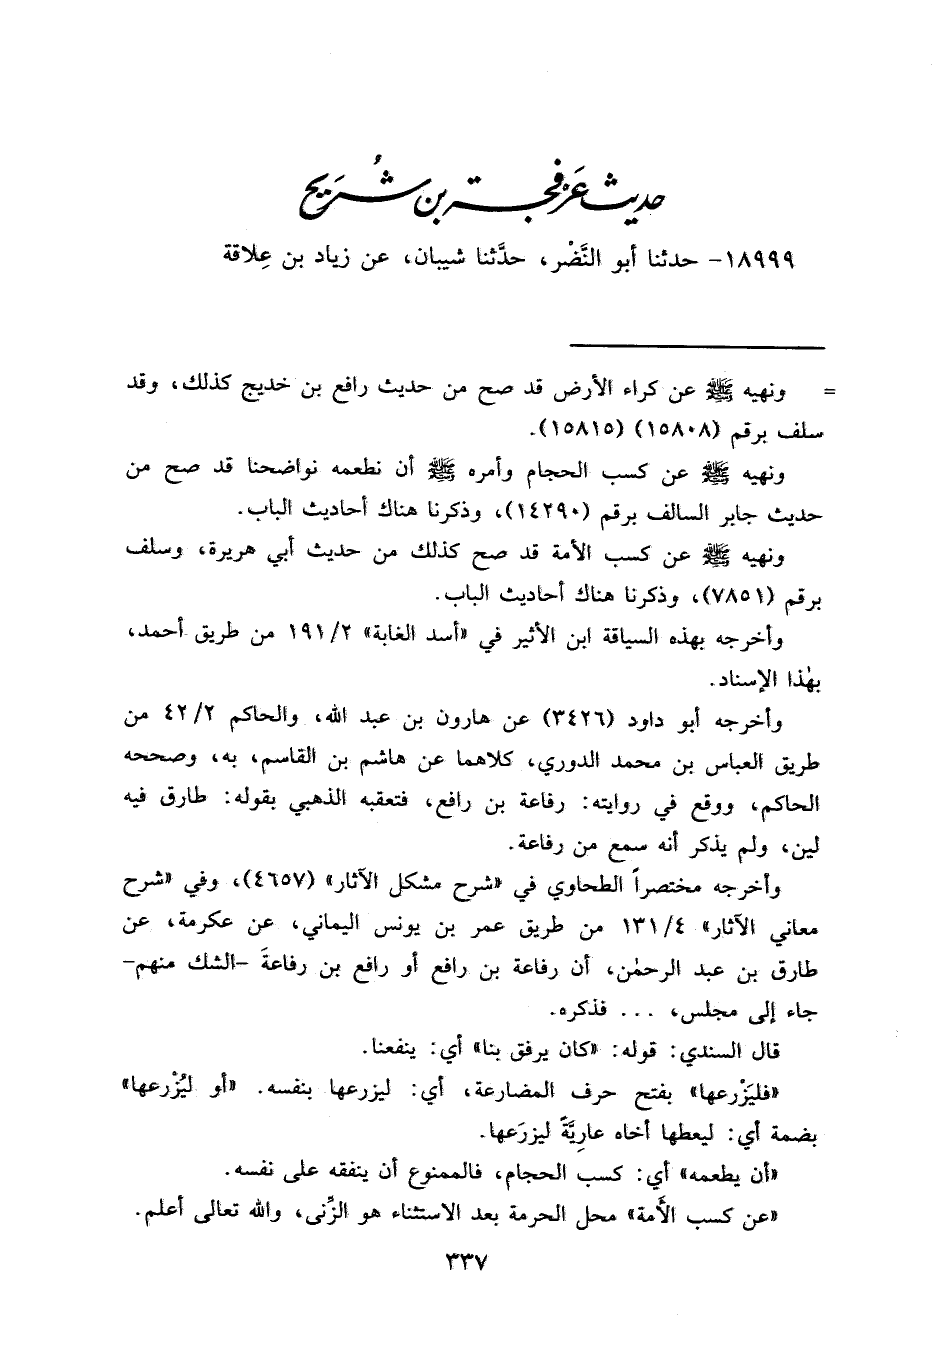 حديث عَرْفجَة بن شُرَيح
١٨٩٩٩- حدثنا أبو النَّضْر، حدَّثنا شيبان، عن زياد بن عِلاقة
= ونهيه ﷺ عن كراء الأرض قد صح من حديث رافع بن خديج كذلك، وقد
سلف برقم (١٥٨٠٨) (١٥٨١٥).
ونهيه ﷺ عن كسب الحجام وأمره ﷺ أن نطعمه نواضحنا قد صح من
حديث جابر السالف برقم (١٤٢٩٠)، وذكرنا هناك أحاديث الباب.
ونهيه ﷺ عن كسب الأمة قد صح كذلك من حديث أبي هريرة، وسلف
برقم (٧٨٥١)، وذكرنا هناك أحاديث الباب.
وأخرجه بهذه السياقة ابن الأثير في «أسد الغابة» ١٩١/٢ من طريق أحمد،
بهٰذا الإسناد.
وأخرجه أبو داود (٣٤٢٦) عن هارون بن عبد الله، والحاكم ٤٢/٢ من
طريق العباس بن محمد الدوري، كلاهما عن هاشم بن القاسم، به، وصححه
الحاكم، ووقع في روايته: رفاعة بن رافع، فتعقبه الذهبي بقوله: طارق فيه
لين، ولم يذكر أنه سمع من رفاعة.
وأخرجه مختصراً الطحاوي في «شرح مشكل الآثار» (٤٦٥٧)، وفي «شرح
معاني الآثار» ١٣١/٤ من طريق عمر بن يونس اليماني، عن عكرمة، عن
طارق بن عبد الرحمٰن، أن رفاعة بن رافع أو رافع بن رفاعةَ -الشك منهم-
جاء إلى مجلس، ... فذكره.
قال السندي: قوله: «كان يرفق بنا» أي: ينفعنا.
«فليَزْرعها» بفتح حرف المضارعة، أي: ليزرعها بنفسه. «أو ليُزْرعها»
بضمة أي: ليعطها أخاه عارِيَّةً ليزرَعها.
«أن يطعمه» أي: كسب الحجام، فالممنوع أن ينفقه على نفسه.
«عن كسب الأَمة» محل الحرمة بعد الاستثناء هو الزِّنى، والله تعالى أعلم.
٣٣٧